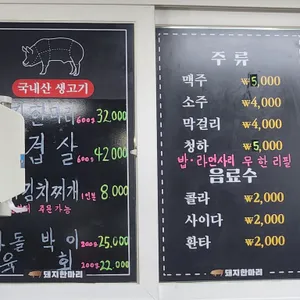 국내산 생고기
600g 32,000
겹 살 600g 42,000
김치찌개 1인분 8,000
주문가능
돌 박 이 200g 25,000
육 회 200g 22,000
돼지한마리
주 류
맥주 ₩5,000
소주 ₩4,000
막걸리 ₩4,000
청하 ₩5,000
밥·라면사리 무한리필
음료수
콜라 ₩2,000
사이다 ₩2,000
환타 ₩2,000
돼지한마리